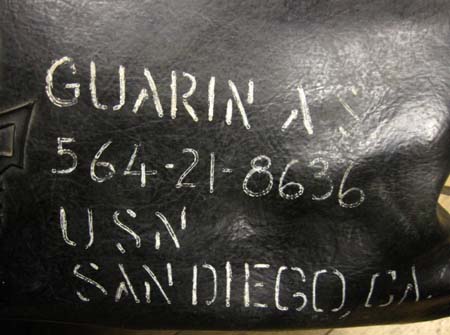 GUARIN A S
564-21-8636
USN
SAN DIEGO, CA.